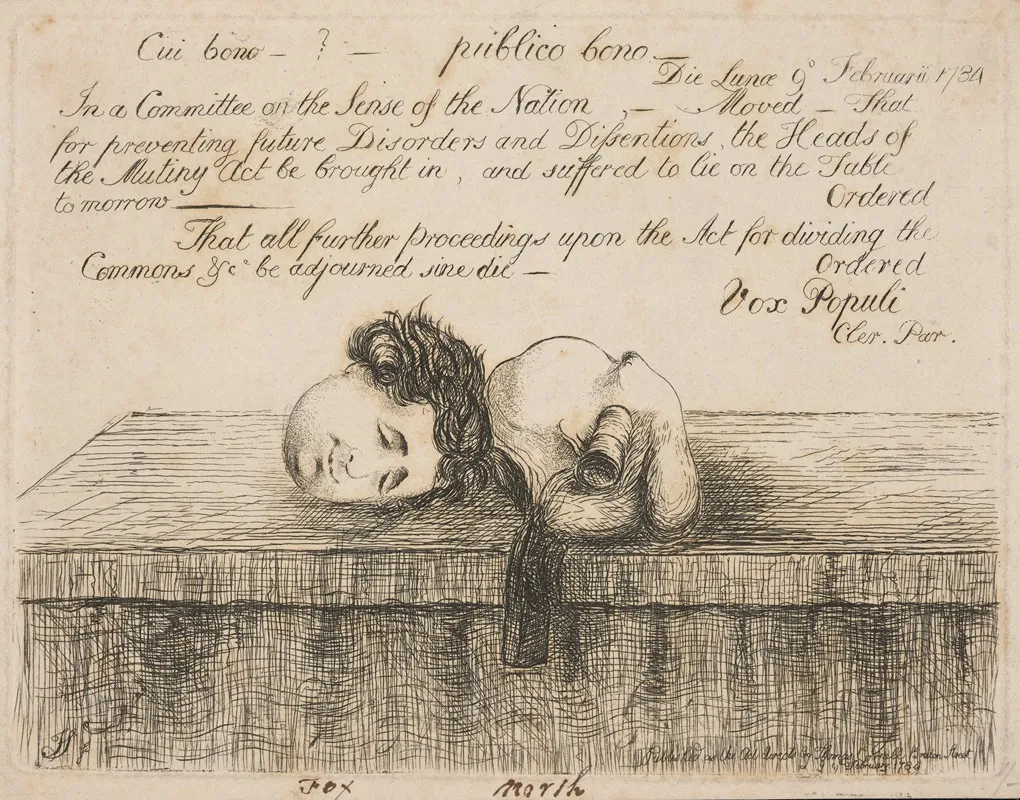 Cui bono — ? — publico bono. —
Die Lunæ 9° Februarii 1784
In a Committee on the Sense of the Nation, — Moved — That
for preventing future Disorders and Dissentions, the Heads of
the Mutiny Act be brought in, and suffered to lie on the Table
to morrow ———
Ordered
That all further Proceedings upon the Act for dividing the
Commons &c. be adjourned sine die —
Ordered
Vox Populi
Cler. Par.
Published as the Act directs by Thomas
February 1784
Fox North